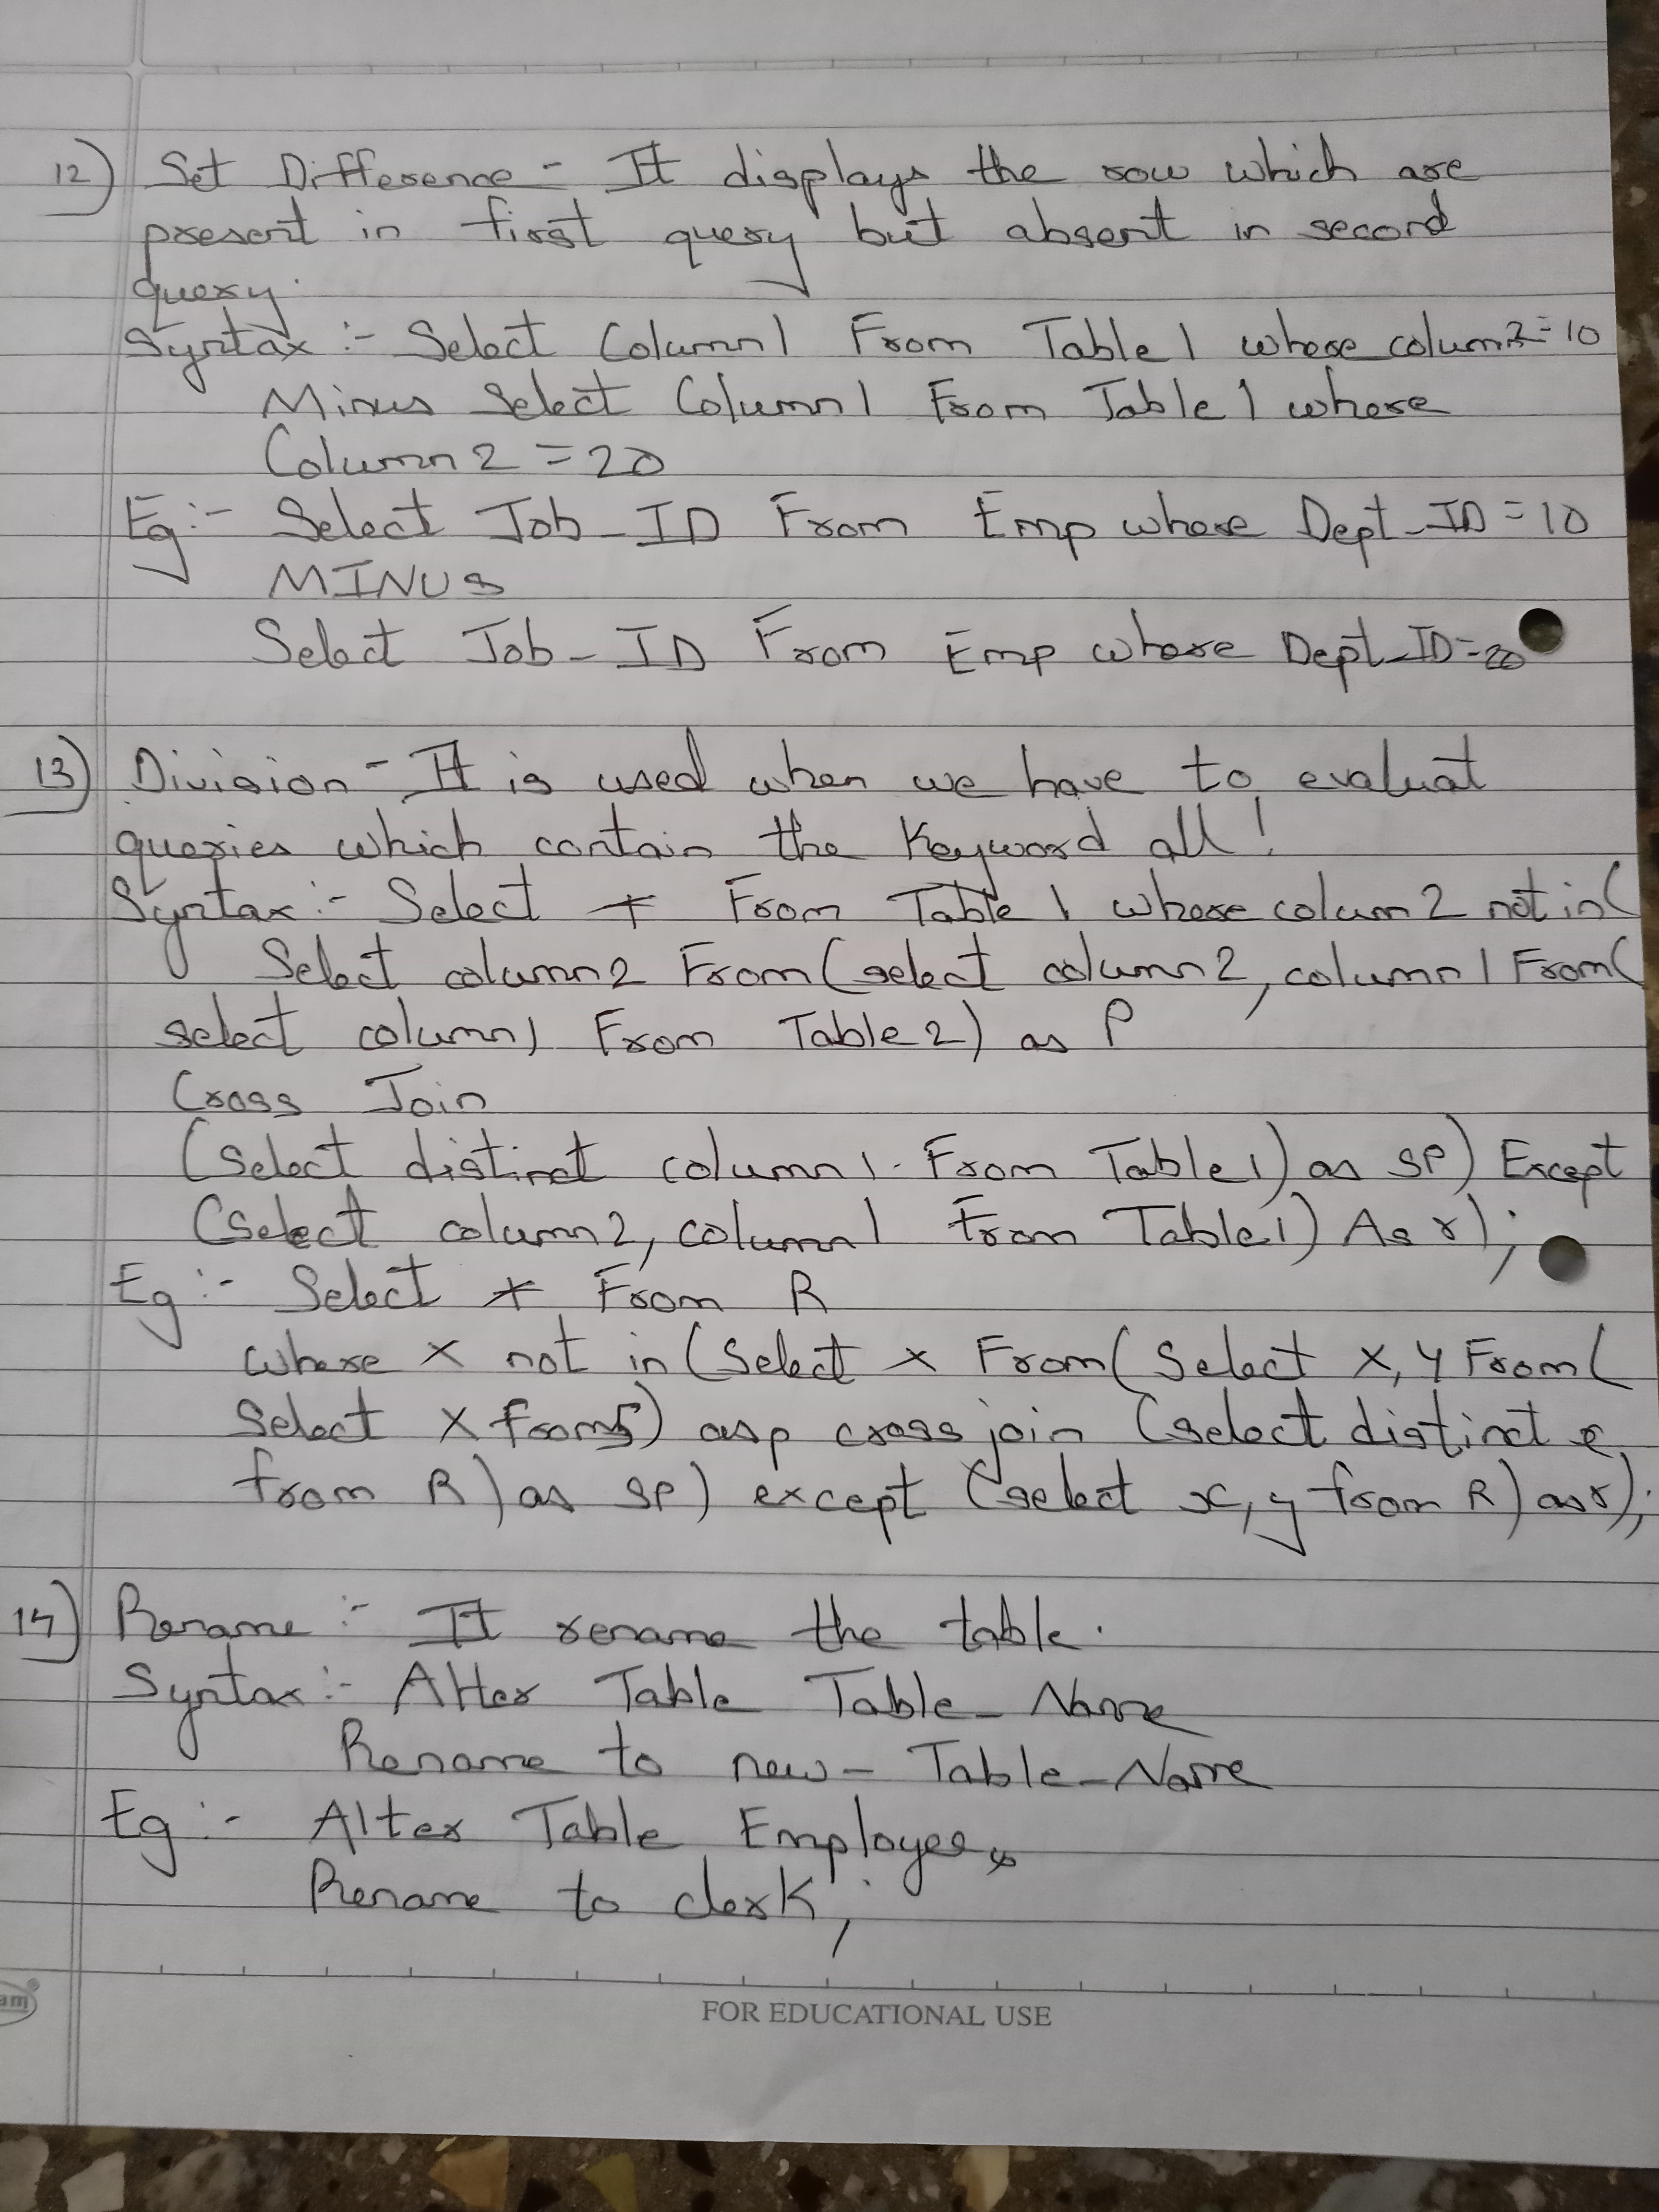 12) Set Difference - It displays the row which are
present in first query but absent in second
query.
Syntax :- Select Column1 From Table1 where column2=10
Minus Select Column1 From Table1 where
Column2 = 20
Eg :- Select Job_ID From Emp where Dept_ID = 10
MINUS
Select Job_ID From Emp where Dept_ID=20
13) Division - It is used when we have to evaluat
queries which contain the Keyword all!
Syntax :- Select * From Table1 where colum2 not in(
Select column2 From(select column2, column1 From(
select column1 From Table2) as P
Cross Join
(Select distinct column1 From Table1) as SP) Except
(Select column2, column1 From Table1) As r);
Eg :- Select * From R
where x not in (Select x From( Select x, y From(
Select x From S) as p cross join (select distinct
from R) as SP) except (select x, y from R) as r);
14) Rename :- It rename the table.
Syntax :- Alter Table Table_Name
Rename to new_Table_Name
Eg :- Alter Table Employee
Rename to clerk;
am
FOR EDUCATIONAL USE